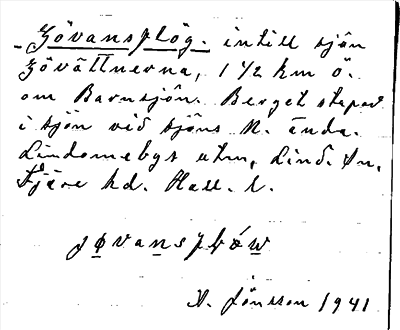 Gövansplög. intill sjön
Gövättnerna, 1 1/2 km Ö.
om Barnsjön. Berget stupar
i sjön vid sjöns N. ända.
Lindomebys utm, Lind. sn,
Fjäre hd. Hall. l.
jøvansplów
A. Jönsson 1941